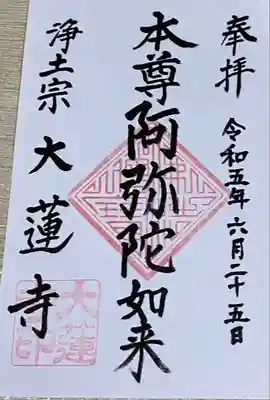 奉拝
令和五年六月二十五日
本尊阿弥陀如来
浄土宗
大蓮寺